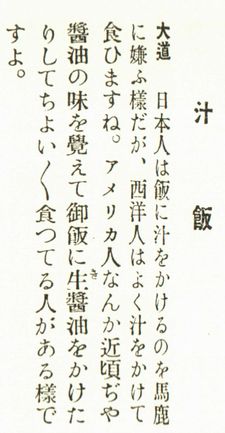 汁飯
大道　日本人は飯に汁をかけるのを馬鹿
に嫌ふ様だが、西洋人はよく汁をかけて
食ひますね。アメリカ人なんか近頃ぢや
醬油の味を覺えて御飯に生醬油をかけた
りしてちよい〱食つてる人がある樣で
すよ。